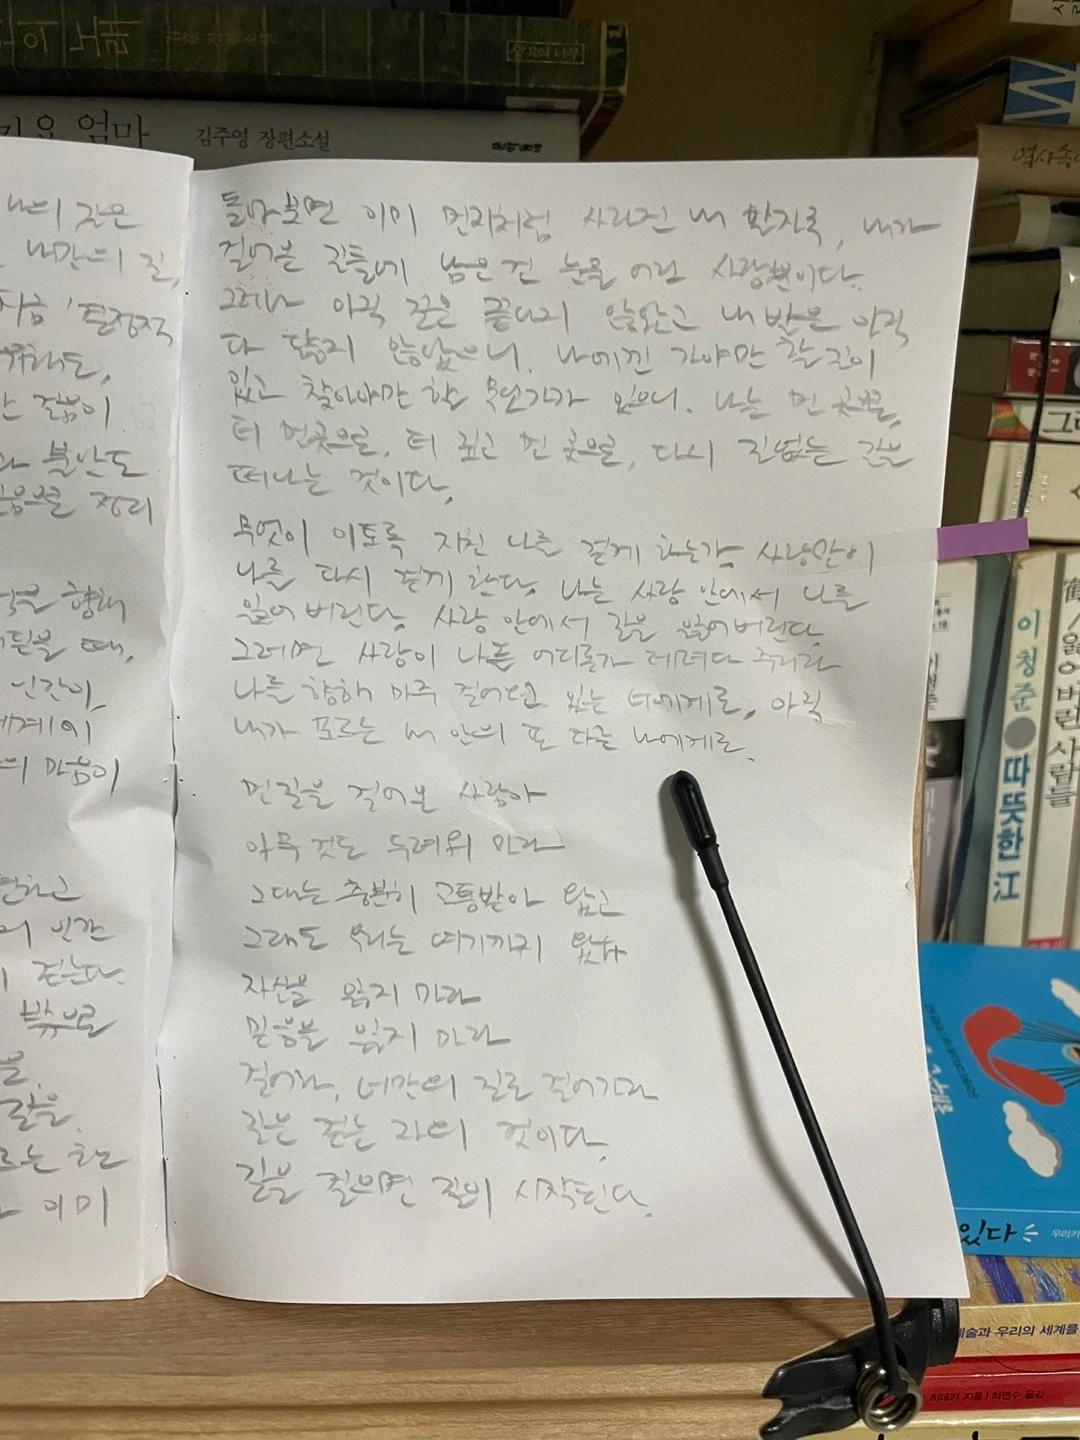 김주영 장편소설
엄마
나의 길은
나만의 길,
지금 '결정적
돌아보면 이미 먼지처럼 사라진 내 발자국, 내가
걸어온 길들에 남은 건 눈물 어린 사랑뿐이다.
그러나 아직 길은 끝나지 않았고 내 발은 아직
다 닳지 않았으니. 나에겐 가야만 할 길이
있고 찾아야만 할 무언가가 있으니. 나는 먼 곳으로,
더 먼 곳으로, 더 깊고 먼 곳으로, 다시 길 없는 길을
떠나는 것이다.
무엇이 이토록 지친 나를 걷게 하는가. 사랑만이
나를 다시 걷게 한다. 나는 사랑 안에서 나를
잃어버린다. 사랑 안에서 길을 잃어버린다.
그러면 사랑이 나를 어디론가 데려다 주리라
나를 향해 마주 걸어오고 있는 너에게로, 아직
내가 모르는 내 안의 또 다른 나에게로.
먼 길을 걸어온 사람아
아무 것도 두려워 마라
그대는 충분히 고통받아 왔고
그래도 우리는 여기까지 왔다
자신을 잃지 마라
믿음을 잃지 마라
걸어라, 너만의 길로 걸어가라
길은 걷는 자의 것이다.
길을 걸으면 길이 시작된다.
불안도
정리
향해
때,
인간이,
마음이
인간
걷는다.
밖으로
길을.
이미
역사속
이청준
따뜻한 江
잃어버린 사람들
있다
우리의 세계를